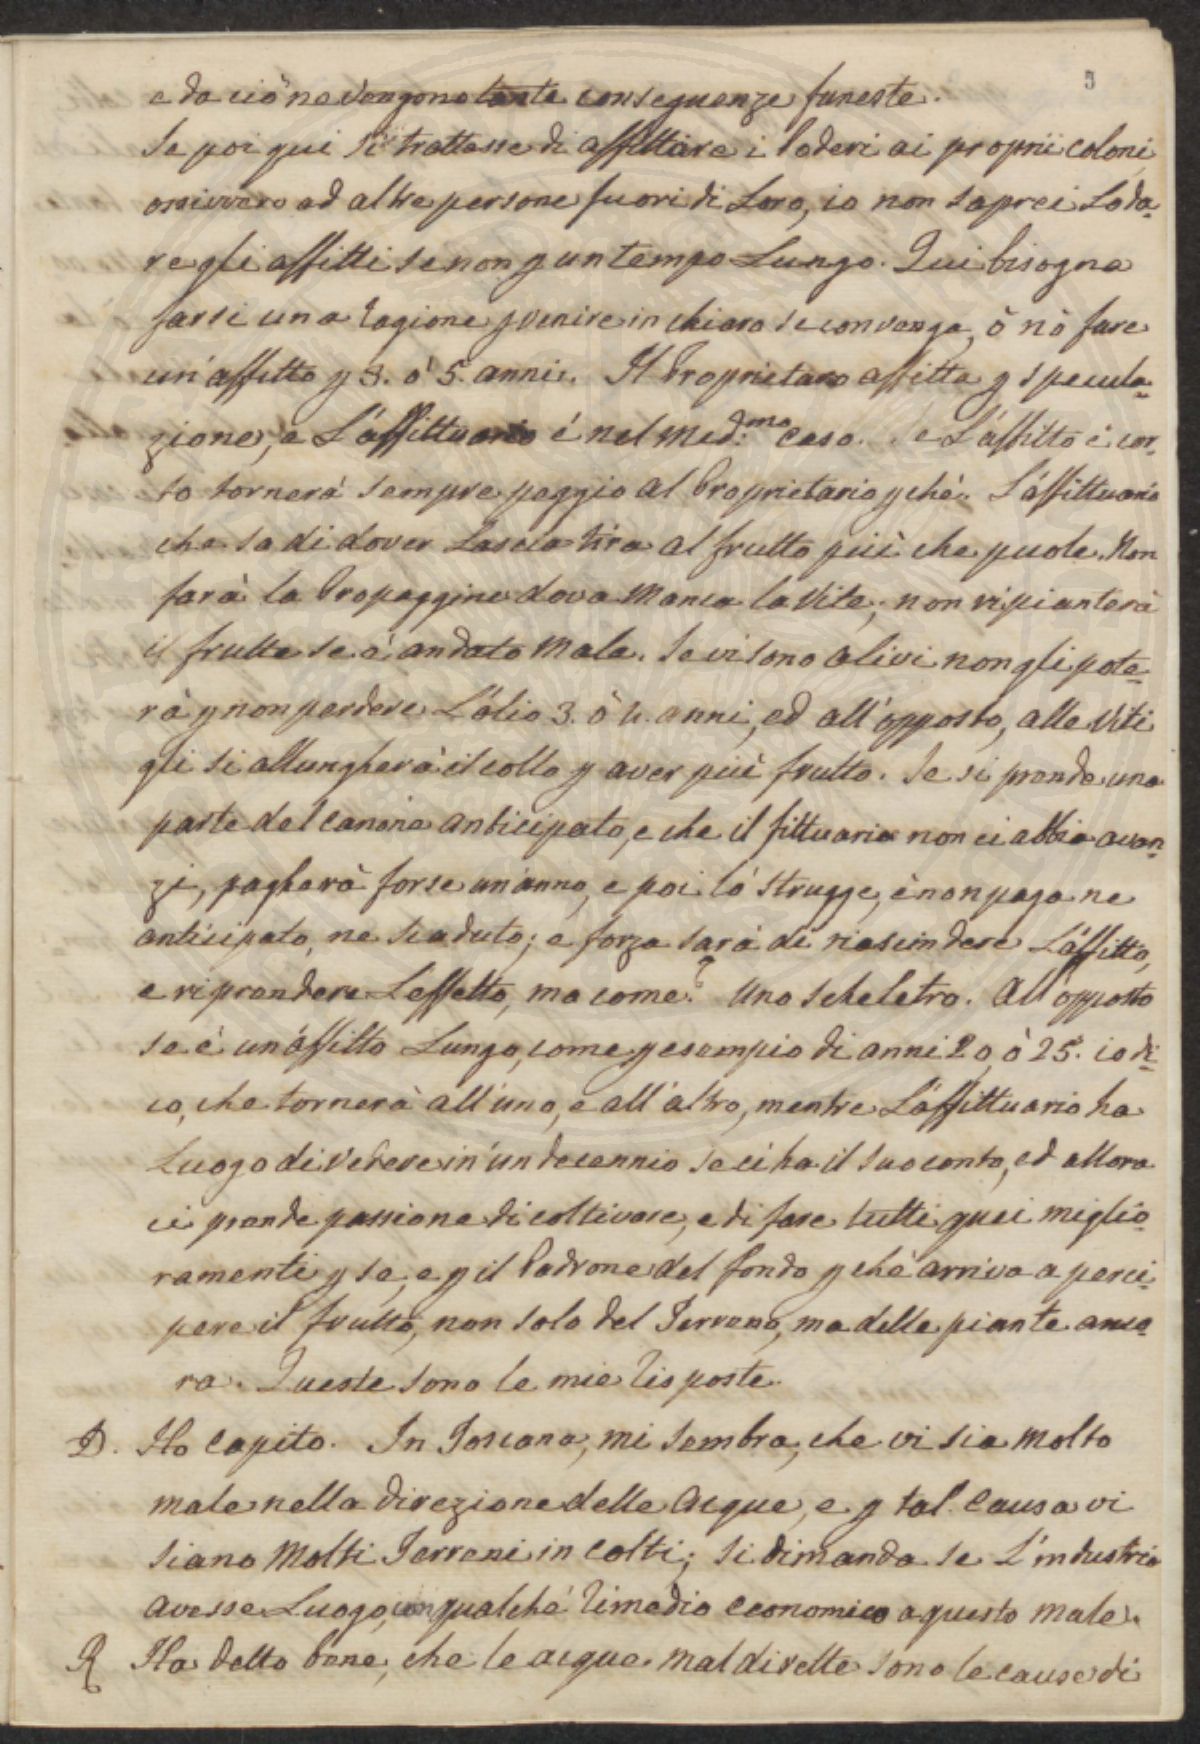 5
e da ciò ne vengono tante conseguenze funeste.
Se poi qui si trattasse di affittare i Poderi ai proprii coloni
ossivvero ad altre persone fuori di Loro, io non saprei Loda-
re gli affitti se non p un tempo Lungo. Qui bisogna
farsi una ragione p venire in chiaro se convenga, ò nò fare
un'affitto p 3. ò 5. anni. Il Proprietario affitta p specula-
zione, e L'affittuario é nel med:mo caso. Se L'affitto é cor-
to tornerà sempre peggio al Proprietario pchè: L'affittuario
che sa di dover Lasciar tira al frutto più che puole. Non
farà la Propaggine dova manca la Vite; non ripianterà
il frutto se è andato male. Se vi sono olivi non gli pote-
rà p non perdere L'olio 3. ò 4. anni, ed all'opposto, alle Viti
gli si allungherà il collo p aver più frutto. Se si prende una
parte del canone anticipato, e che il fittuario non ci abbia avan-
zi, pagherà forse un'anno, e poi lo strugge, è non paga ne
anticipato, ne scaduto; e forza sarà di riascindere L'affitto,
e riprendere L'effetto, ma come? Uno scheletro. All'opposto
se é un'affitto Lungo, come p esempio di anni 20, ò 25. io di-
co, che tornerà all'uno, e all'altro, mentre L'affittuario ha
Luogo di vedere in un decennio se ci ha il suo conto, ed allora
ci prende passione di coltivare, e di fare tutti quei miglio-
ramenti p se, e p il Padrone del fondo pchè arriva a perci-
pere il frutto, non solo del Terreno, ma delle piante anco-
ra. Queste sono le mie risposte.
D. Ho capito. In Toscana, mi sembra, che vi sia molto
male nella direzione delle Acque, e p tal causa vi
siano Molti Terreni in colti; si dimanda se L'industria
avesse Luogo, con qualche rimedio economico a questo male.
R Ha detto bene, che le acque mal dirette sono le cause di